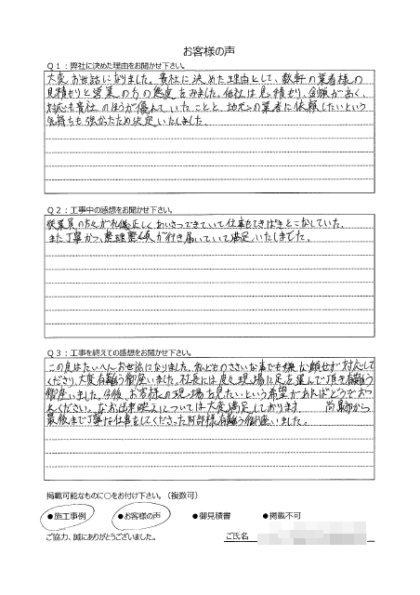 お客様の声
Q1：弊社に決めた理由をお聞かせ下さい。
大変お世話になりました。貴社に決めた理由として、数軒の業者様の
見積もりと営業の方の態度をみました。他社は見積もり、金額が高く、
対応も貴社のほうが優れていたことと、地元の業者に依頼したいという
気持ちも強かったため決定いたしました。
Q2：工事中の感想をお聞かせ下さい。
従業員の方々が礼儀正しくあいさつできていて仕事もてきぱきとこなしていた。
また丁寧かつ、整理整頓が行き届いていて満足いたしました。
Q3：工事を終えての感想をお聞かせ下さい。
この度はたいへんお世話になりました。などどのささいな事でも嫌な顔せず対応して
くださり、大変有難う御座いました。社長には良く現場に足を運んで頂き有難う
御座いました。今後、お客様の現場を見たいという希望があればどうぞおっ
しゃください。なお出来映えについては大変満足しております。 から
最後まで丁寧な仕事をしてくださった 有難う御座いました。
掲載可能なものに○をお付け下さい。（複数可）
●施工事例 ●お客様の声 ●御見積書 ●掲載不可
ご協力、誠にありがとうございました。 ご氏名